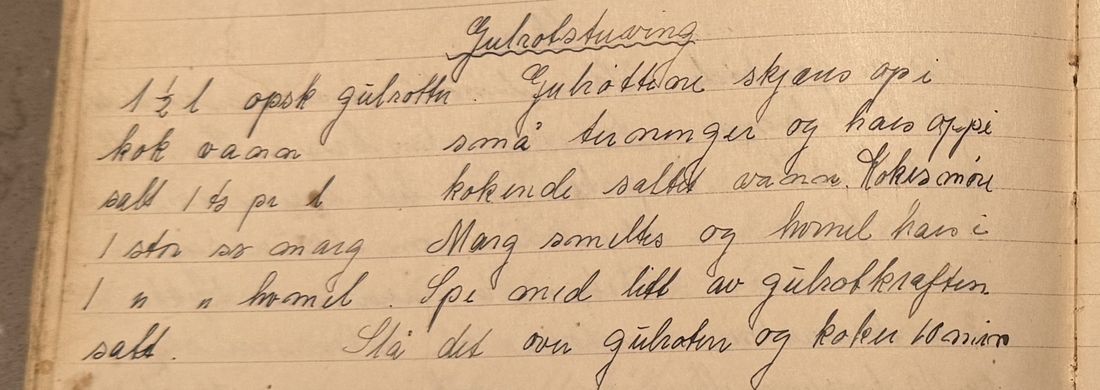 Gulrotstuving
1 ½ l opsk gulrøtter. Gulrøttene skjæres op i
kok vann små terninger og haes oppi
salt 1 ts pr l kokende saltet vann. Kokes møre
1 stor sp marg Marg smeltes og hvmel haes i
1 " " hvmel. Spe med litt av gulrotkraften
salt. Slå det over gulroten og koker 10 min